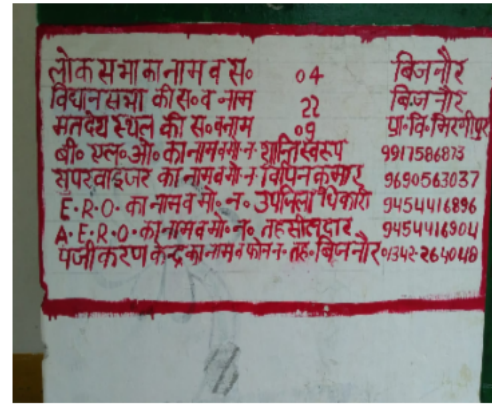 लोक सभा का नाम व स॰ ०4 बिजनौर
विधान सभा की स॰ व नाम 22 बिजनौर
मतदेय स्थल की स॰ व नाम ०9 प्रा॰ वि॰ मिरगीपुर
बी॰ एल॰ ओ॰ का नाम व मो॰ न॰ शान्ति स्वरूप 9917586873
सुपरवाइजर का नाम व मो॰ न॰ विपिन कुमार 9690563037
E॰R॰O॰ का नाम व मो॰ न॰ उपजिलाधिकारी 9454416896
A॰E॰R॰O॰ का नाम व मो॰ न॰ तहसीलदार 9454416904
पंजीकरण केन्द्र का नाम व फोन न॰ तह॰ बिजनौर 01342-264048